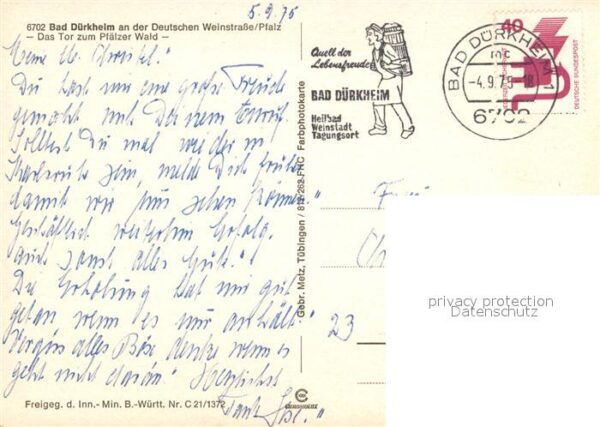 5.9.75
6702 Bad Dürkheim an der Deutschen Weinstraße/Pfalz
— Das Tor zum Pfälzer Wald —
Meine lb.
Du hast mir eine große Freude
gemacht mit Deinem Anruf.
Solltest Du mal wieder in
Karlsruhe sein, melde Dich früher
damit wir uns sehen können!
Geschäftlich weiterhin Erfolg.
auch sonst alles Gute!
Die Erholung hat mir gut
getan wenn es nur anhält!
alles Böse denke wenn es
geht nicht daran! Herzlichst
Tante
Freigeg. d. Inn.- Min. B.-Württ. Nr. C 21/1372
Gebr. Metz, Tübingen / 812 262 FHC Farbphotokarte
Quell der
Lebensfreude
BAD DÜRKHEIM
Heilbad
Weinstadt
Tagungsort
BAD DÜRKHEIM 1
-4.9.75-18
6702
40
DEUTSCHE BUNDESPOST
23
privacy protection
Datenschutz